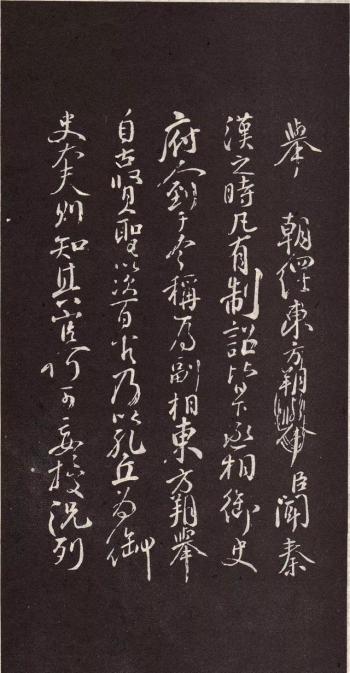 舉 朝經東方朔臣聞秦
漢之時凡有制詔皆下丞相御史
府到于今稱為副相東方朔舉
自古賢聖以次百官乃以孔丘為御
史大夫則知其官何可妄授況列